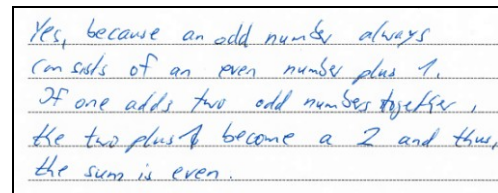 Yes, because an odd number always
consists of an even number plus 1.
If one adds two odd numbers together,
the two plus 1 become a 2 and thus,
the sum is even.